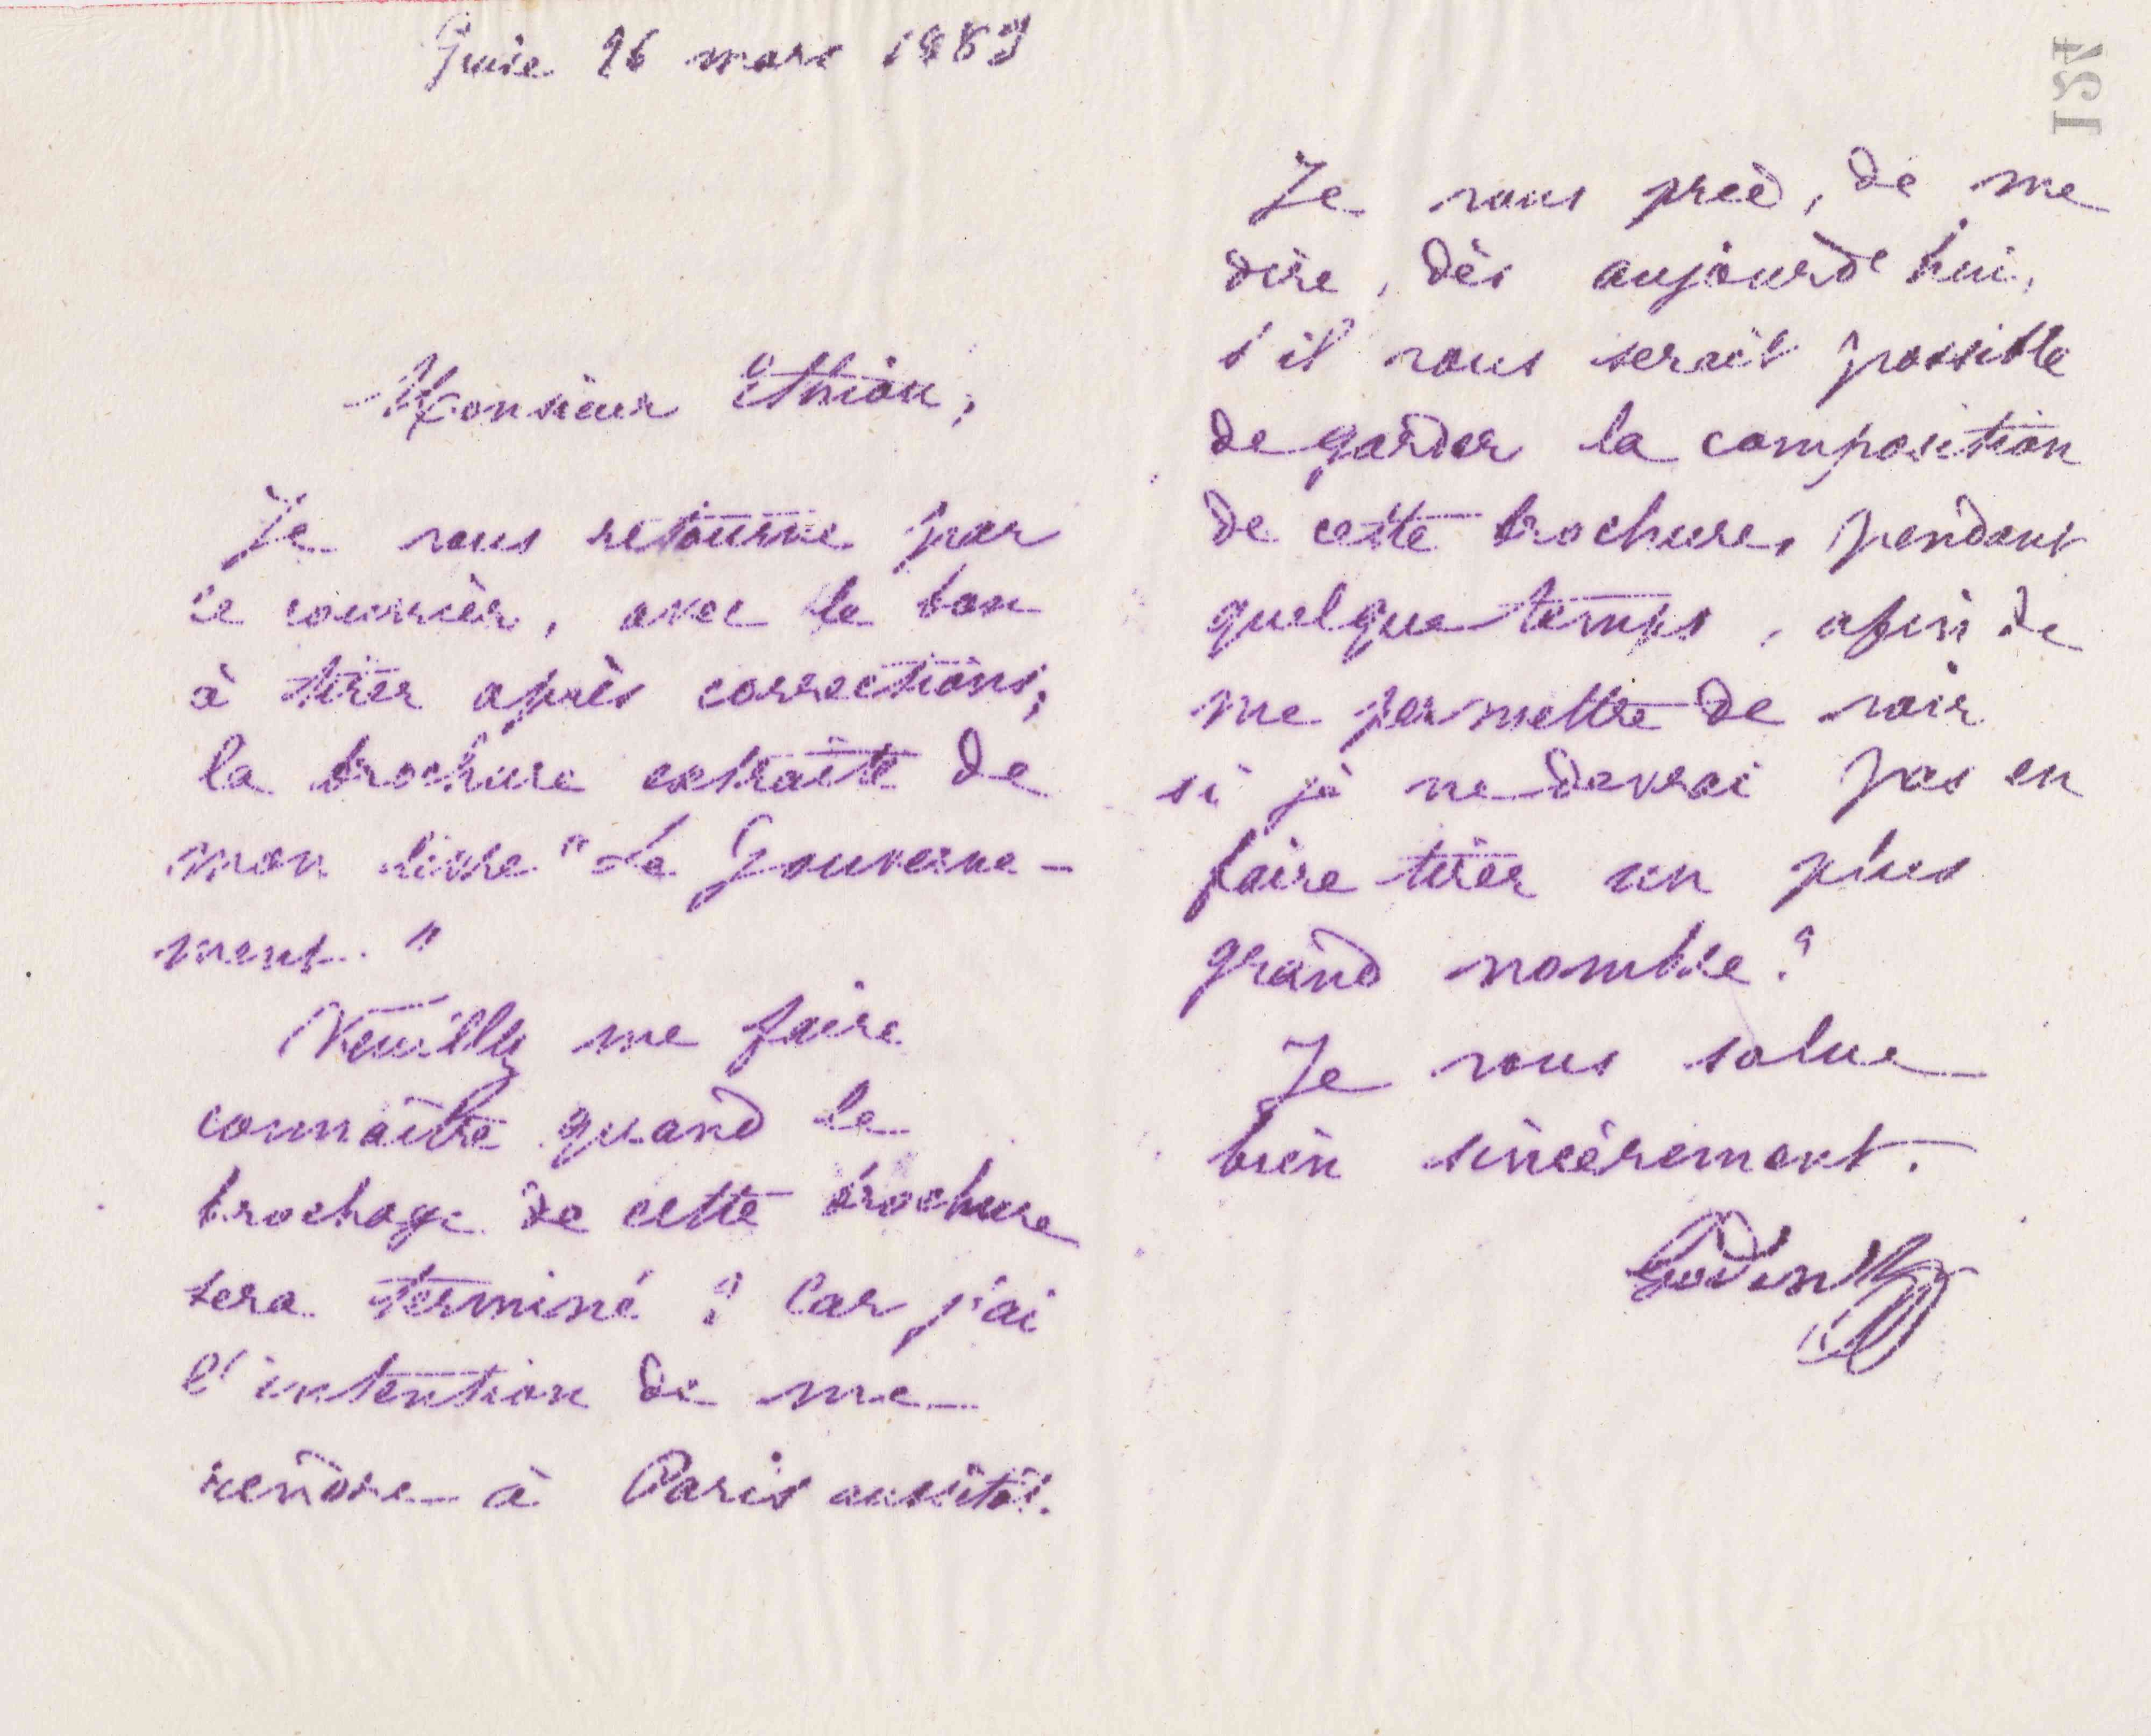 Guise 26 mars 1883
Monsieur Ethiou,
Je vous retourne par
ce courrier, avec le bon
à tirer après corrections,
la brochure extraite de
mon livre "Le Gouverne-
ment."
Veuillez me faire
connaître quand le
brochage de cette brochure
sera terminé ? Car j'ai
l'intention de me
rendre à Paris aussitôt.
Je vous prie, de me
dire, dès aujourd'hui,
s'il vous serait possible
de garder la composition
de cette brochure, pendant
quelque temps, afin de
me permettre de voir
si je ne devrai pas en
faire tirer un plus
grand nombre ?
Je vous salue
bien sincèrement.
Godin